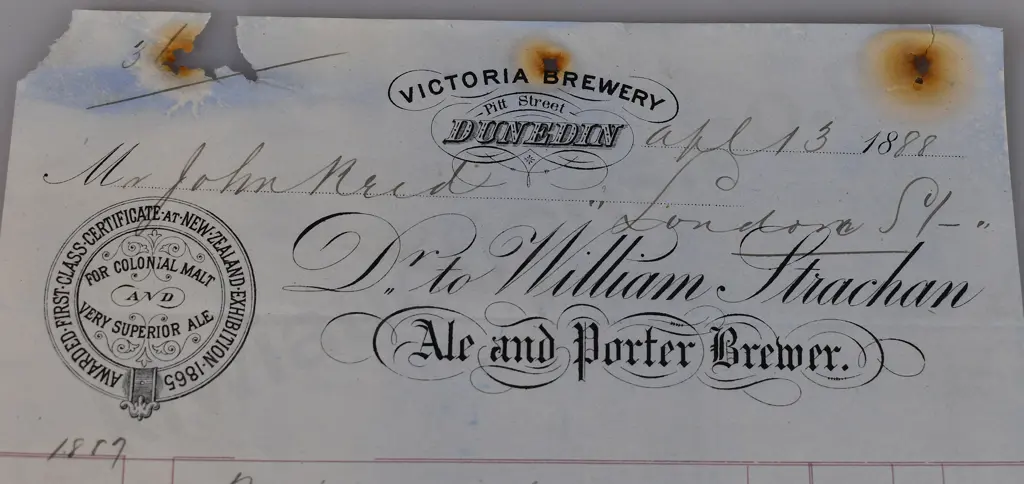 VICTORIA BREWERY
Pitt Street
DUNEDIN
Apl 13 1888
Mr John Reid
" London St "
AWARDED·FIRST·CLASS·CERTIFICATE·AT·NEW·ZEALAND·EXHIBITION·1865
FOR COLONIAL MALT
AND
VERY SUPERIOR ALE
Dr. to William Strachan
Ale and Porter Brewer.
1887